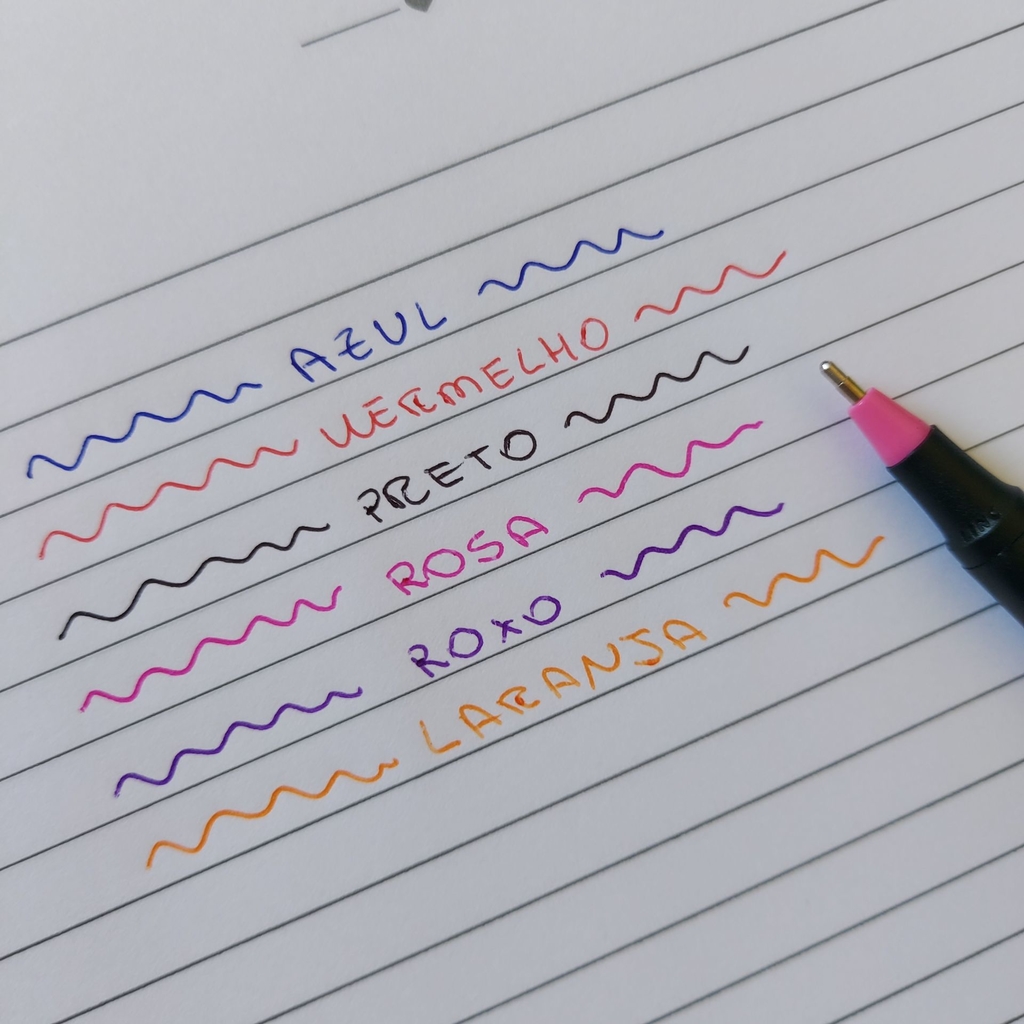 AZUL
VERMELHO
PRETO
ROSA
ROXO
LARANJA